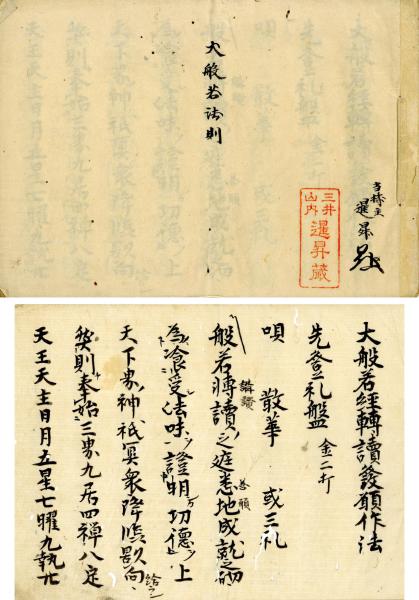 大般若法則
三井
山内
暹昇蔵
主
暹昇
大般若經轉讀發願作法
先登礼盤 金二打
唄 散華 或三礼
般若轉讀之庭悉地成就之砌
講讃
為飡受法味證明功德上
天下界神祇冥衆降臨影向
然則奉始三界九居四禅八定
天王天主日月五星七曜九執